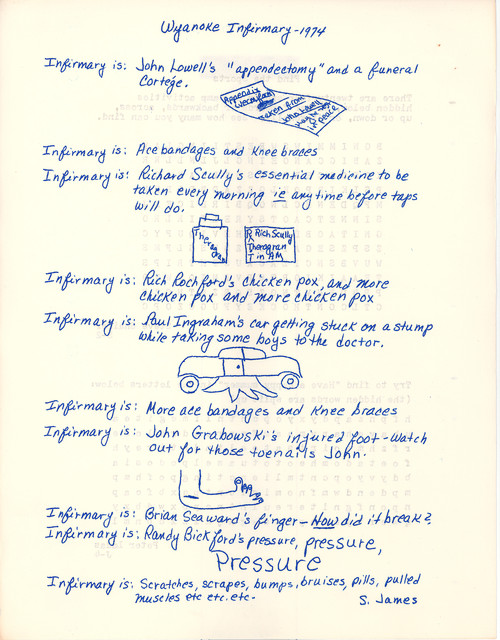 Wyanoke Infirmary-1974
Infirmary is: John Lowell's "appendectomy" and a funeral
Cortege.
Appendix
taken from
John Lowell
Infirmary is: Ace bandages and Knee braces
Infirmary is: Richard Scully's essential medicine to be
taken every morning ie anytime before taps
will do.
Theragran
RX Rich Scully
Theragran
T in AM
Infirmary is: Rich Rochford's chicken pox, and more
chicken pox and more chicken pox
Infirmary is: Paul Ingraham's car getting stuck on a stump
while taking some boys to the doctor.
Infirmary is: More ace bandages and Knee braces
Infirmary is: John Grabowski's injured foot-watch
out for those toenails John.
Infirmary is: Brian Seaward's finger - How did it break?
Infirmary is: Randy Bickford's pressure, pressure,
Pressure
Infirmary is: Scratches, scrapes, bumps, bruises, pills, pulled
muscles etc etc. etc.
S. James